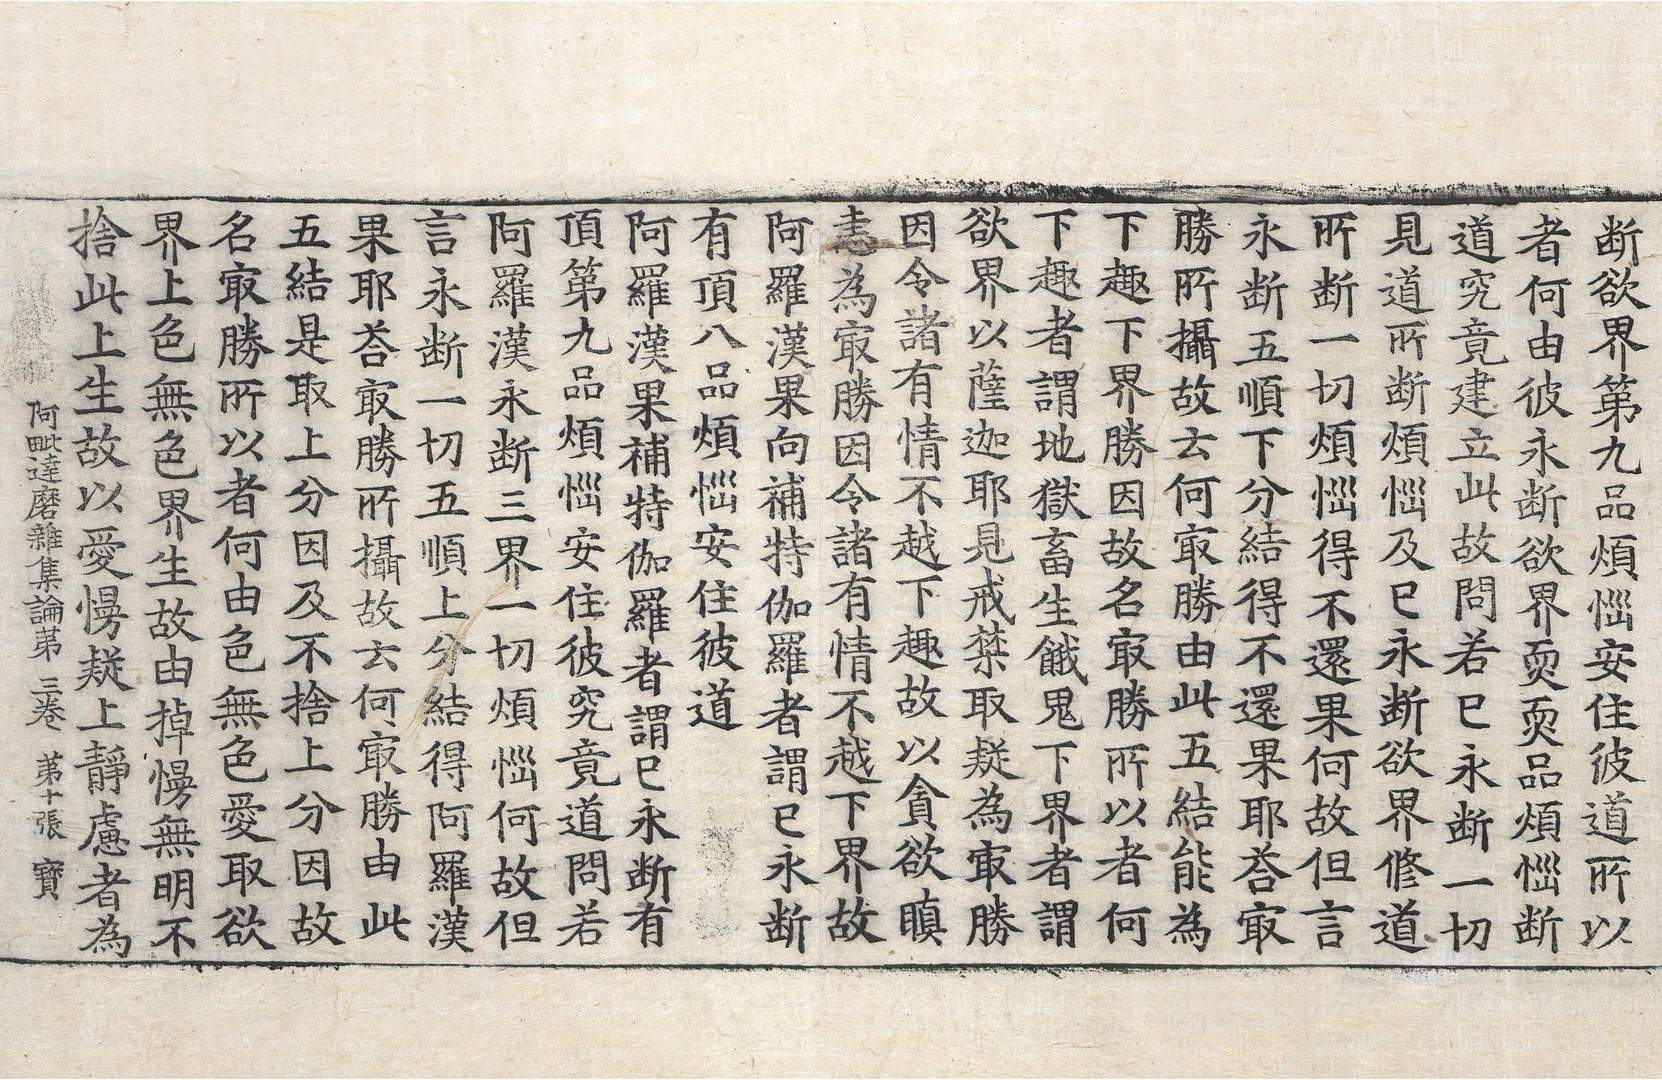 断欲界第九品煩惱安住彼道所以
者何由彼永断欲界耎耎品煩惱断
道究竟建立此故問若已永断一切
見道所断煩惱及已永断欲界修道
所断一切煩惱得不還果何故但言
永断五順下分結得不還果耶荅㝡
勝所攝故云何㝡勝由此五結能為
下趣下界勝因故名㝡勝所以者何
下趣者謂地獄畜生餓鬼下界者謂
欲界以薩迦耶見戒禁取疑為㝡勝
因令諸有情不越下趣故以貪欲瞋
恚為㝡勝因令諸有情不越下界故
阿羅漢果向補特伽羅者謂已永断
有頂八品煩惱安住彼道
阿羅漢果補特伽羅者謂已永断有
頂第九品煩惱安住彼究竟道問若
阿羅漢永断三界一切煩惱何故但
言永断一切五順上分結得阿羅漢
果耶荅㝡勝所攝故云何㝡勝由此
五結是取上分因及不捨上分因故
名㝡勝所以者何由色無色愛取欲
界上色無色界生故由掉慢無明不
捨此上生故以愛慢疑上靜慮者為
阿毗達磨雜集論第三卷 第十張 寶